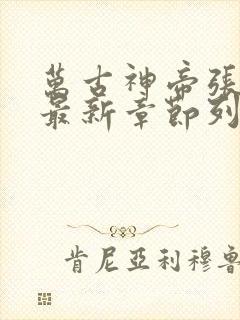 萬古神帝張
最新章節列
肯尼亞利穆魯